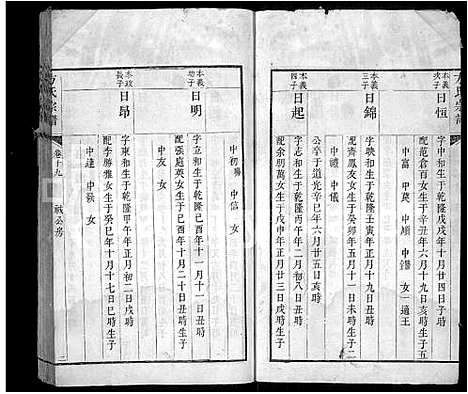 方氏宗譜
本義
次子
日恒
字
和生于乾隆戊戌年十月廿四日子時
配范倉百女生于辛丑年六月十九寅時生子五
中富 中
中順 中
女一適王
本義
三子
日錦
字
和生于乾隆壬寅年正月十九日丑時
配齊鳳友女生于癸卯年五月十一日未時生子二
中禮 中儀
公卒于道光辛巳年六月廿五日亥時
本義
四子
日起
字志和生于乾隆丙午年二月初八日丑時
配余明萬女生于戊申年正月廿三日戌時生子
中初
中信 女
本義
幼子
日明
字立和生于乾隆己酉年十一月十一日丑時
配張庭英女生于己酉年十月二十日丑時生子
中友 女
本政
長子
日昂
字東和生于乾隆甲午年正月初二日戌時
配李勝雅女生于癸巳年十月十七日巳時生子
中達 中
女
方氏宗譜
卷十九
公房
二